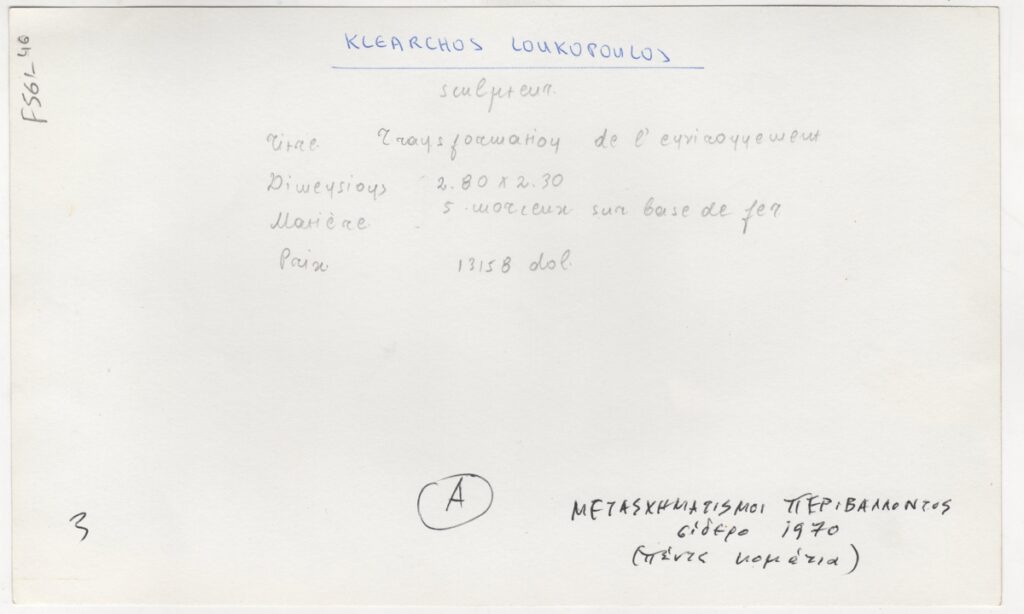 F561_46
KLEARCHOS LOUKOPOULOS
sculpteur
Titre Transformation de l'environnement
Dimensions 2.80 x 2.30
Matière 5 morceux sur base de fer
Prix 13158 dol.
A
3
ΜΕΤΑΣΧΗΜΑΤΙΣΜΟΙ ΠΕΡΙΒΑΛΛΟΝΤΟΣ
σίδερο 1970
(πέντε κομάτια)